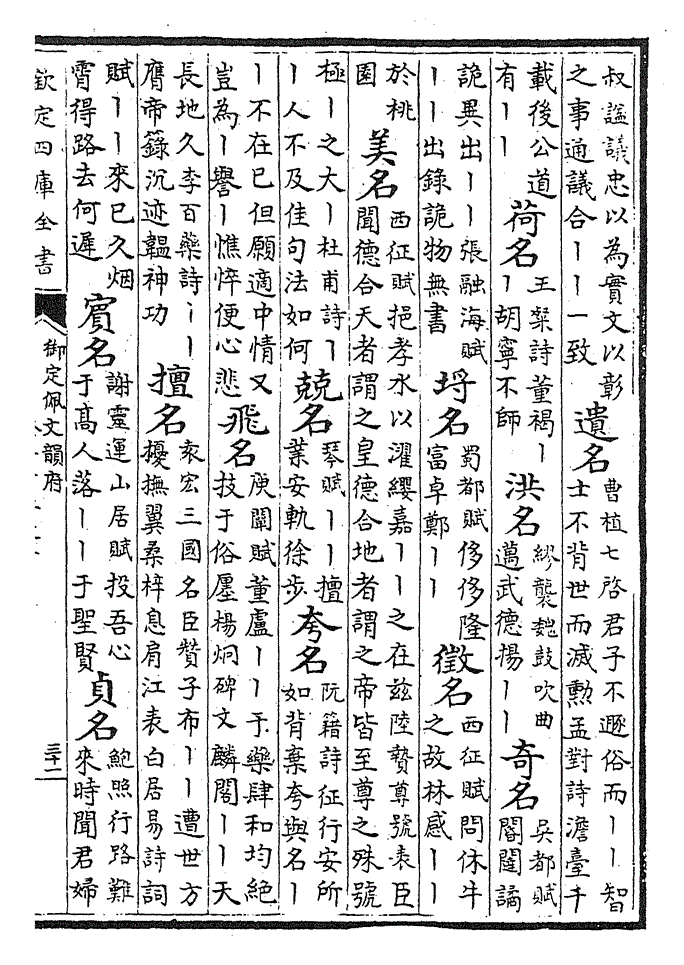 叔謚議忠以為實文以彰
之事通議合丨丨一致
遺名
曹植七啓君子不遯俗而丨丨智
士不背世而滅勲孟對詩澹臺千
載後公道
有丨丨
荷名
王粲詩董褐丨
丨胡寧不師
洪名
繆襲魏鼓吹曲
邁武德揚丨丨
奇名
吳都賦
閽闥譎
詭異出丨丨張融海賦
丨丨出錄詭物無書
埒名
蜀都賦侈侈隆
富卓鄭丨丨
徵名
西征賦問休牛
之故林感丨丨
於桃
園
美名
西征賦挹孝水以濯纓嘉丨丨之在兹陸贄尊號表臣
聞德合天者謂之皇德合地者謂之帝皆至尊之殊號
極丨之大丨杜甫詩丨
丨人不及佳句法如何
兢名
琴賦丨丨擅
業安軌徐步
夸名
阮籍詩征行安所
如背棄夸與名丨
丨不在已但願適中情又
豈為丨譽丨憔悴便心悲
飛名
庾闡賦董盧丨丨于藥肆和均絕
技于俗廛楊炯碑文麟閣丨丨天
長地久李百藥詩丨丨
膺帝籙沉迹韞神功
擅名
袁宏三國名臣贊子布丨丨遭世方
擾撫翼桑梓息肩江表白居易詩詞
賦丨丨來已久烟
霄得路去何遲
賓名
謝靈運山居賦投吾心
于髙人落丨丨于聖賢
貞名
鮑照行路難
來時聞君婦
欽定四庫全書
御定佩文韻府
三十一